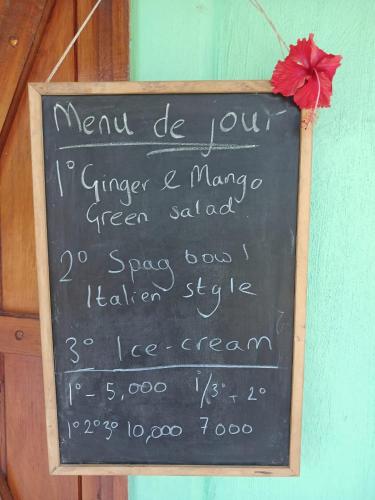 Menu de jour
1° Ginger & Mango
Green salad
2° Spag bowl
Italien style
3° Ice-cream
1° - 5,000 1/3° + 2°
1° 2° 3° 10,000 7000